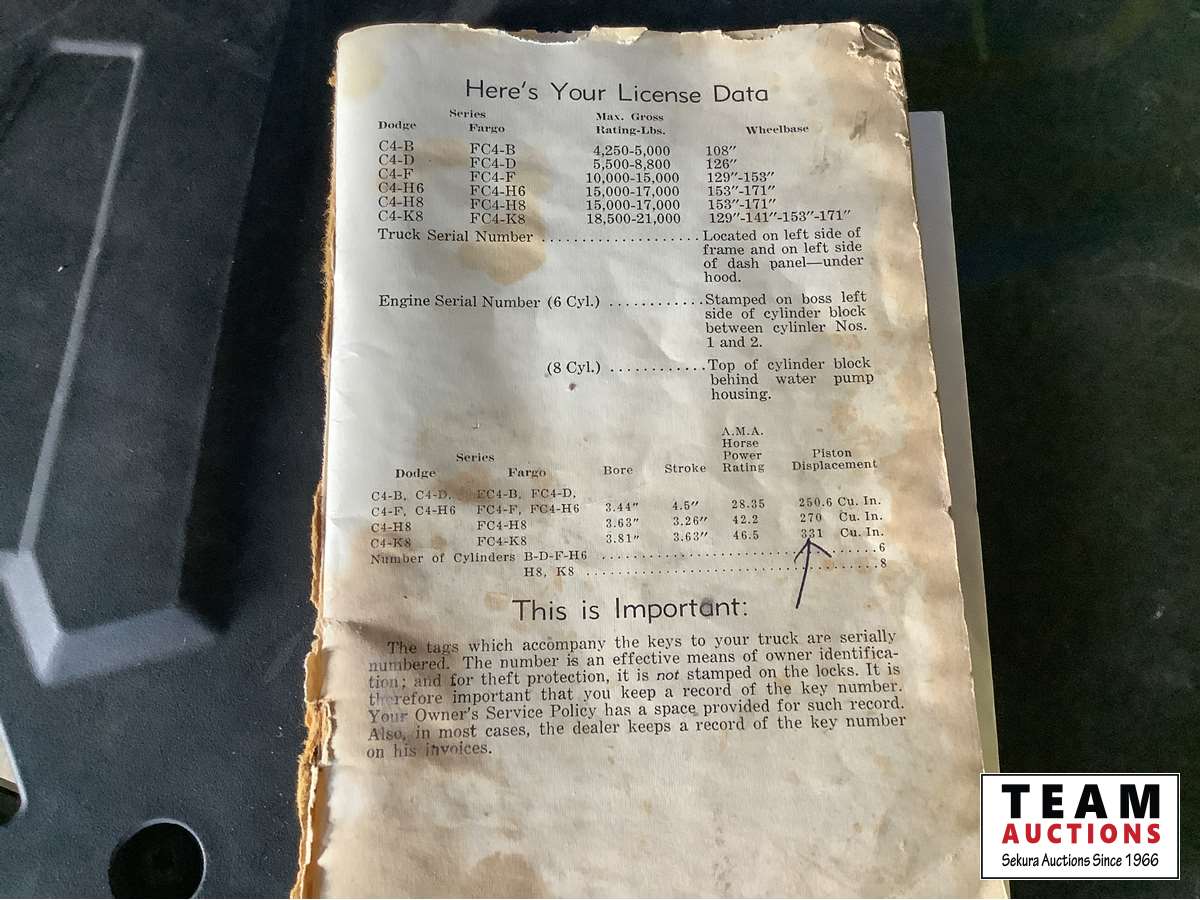 Here's Your License Data
Series Max. Gross
Dodge Fargo Rating-Lbs. Wheelbase
C4-B FC4-B 4,250-5,000 108″
C4-D FC4-D 5,500-8,800 126″
C4-F FC4-F 10,000-15,000 129″-153″
C4-H6 FC4-H6 15,000-17,000 153″-171″
C4-H8 FC4-H8 15,000-17,000 153″-171″
C4-K8 FC4-K8 18,500-21,000 129″-141″-153″-171″
Truck Serial Number ................... Located on left side of
frame and on left side
of dash panel—under
hood.
Engine Serial Number (6 Cyl.) ............ Stamped on boss left
side of cylinder block
between cylinler Nos.
1 and 2.
(8 Cyl.) ............ Top of cylinder block
behind water pump
housing.
A.M.A.
Horse
Series Power Piston
Dodge Fargo Bore Stroke Rating Displacement
C4-B, C4-D, FC4-B, FC4-D,
C4-F, C4-H6 FC4-F, FC4-H6 3.44″ 4.5″ 28.35 250.6 Cu. In.
C4-H8 FC4-H8 3.63″ 3.26″ 42.2 270 Cu. In.
C4-K8 FC4-K8 3.81″ 3.63″ 46.5 331 Cu. In.
Number of Cylinders B-D-F-H6 ..............................6
H8, K8 ................................8
This is Important:
The tags which accompany the keys to your truck are serially
numbered. The number is an effective means of owner identifica-
tion; and for theft protection, it is not stamped on the locks. It is
therefore important that you keep a record of the key number.
Your Owner's Service Policy has a space provided for such record.
Also, in most cases, the dealer keeps a record of the key number
on his invoices.
TEAM
AUCTIONS
Sekura Auctions Since 1966